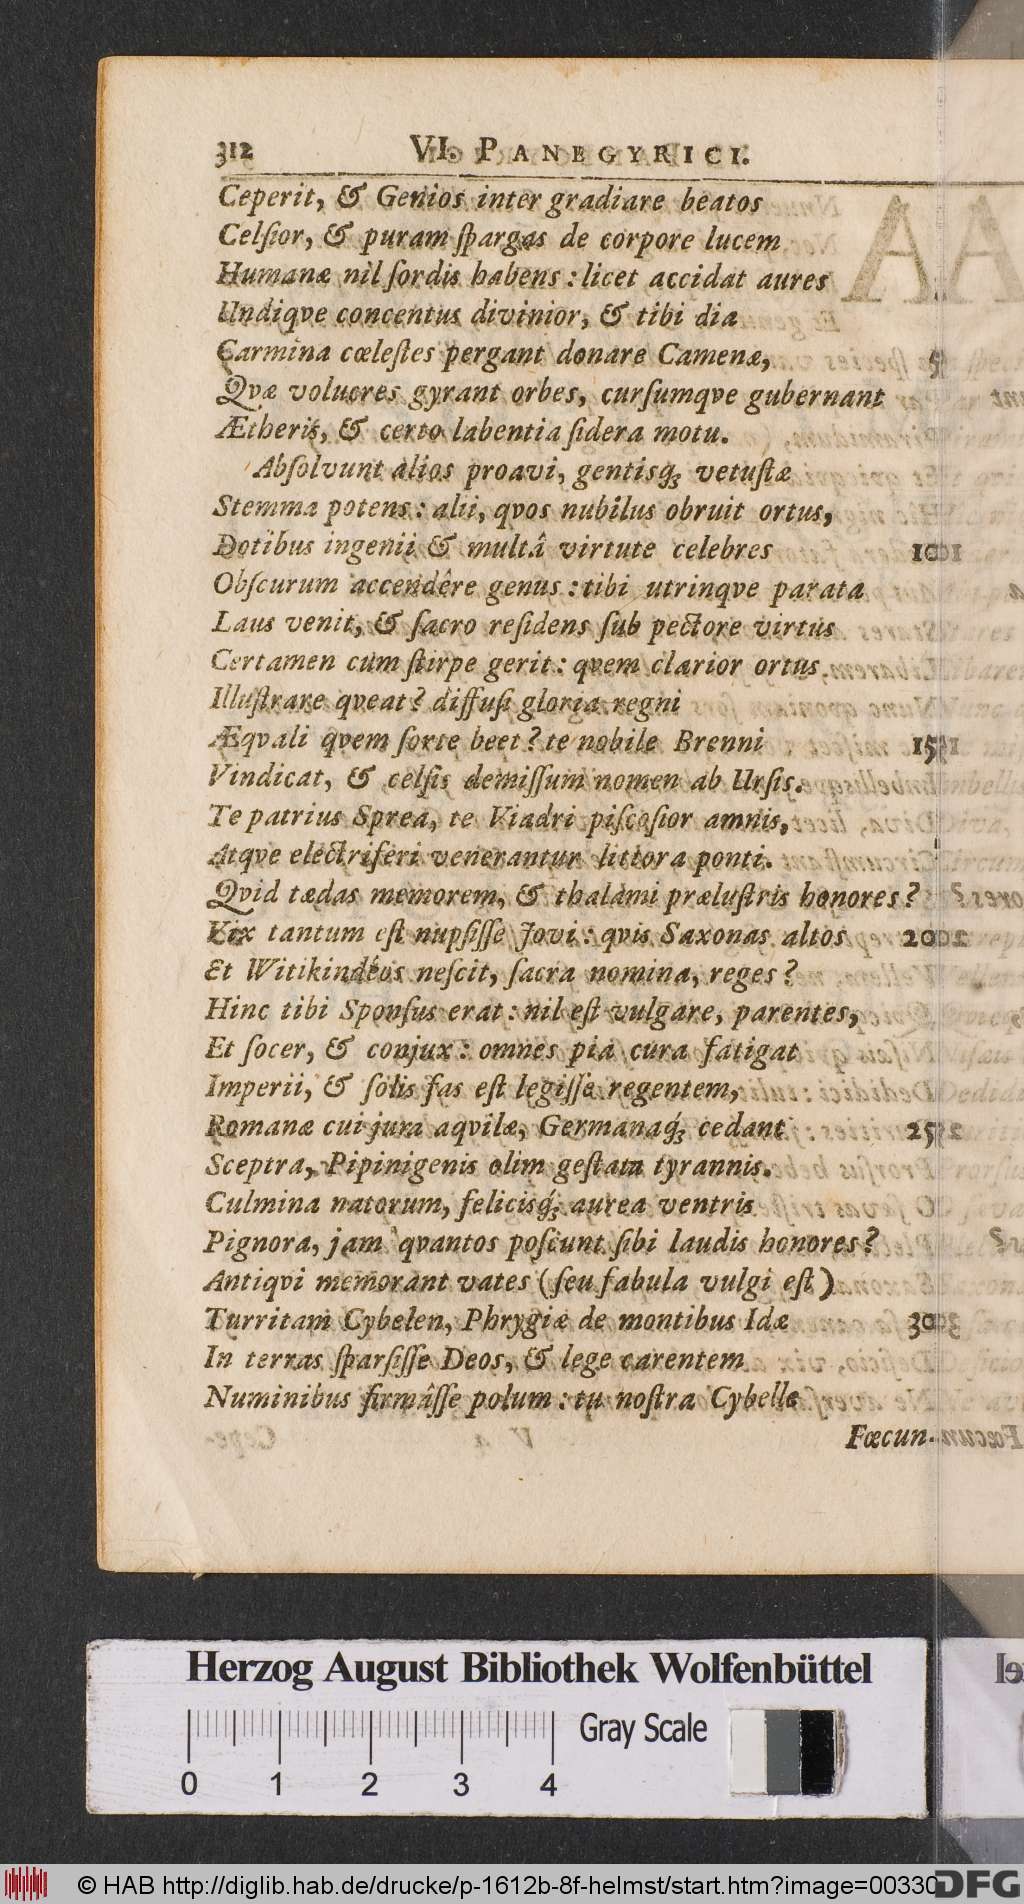 312 VI. PANEGYRICI.
Ceperit, & Genios inter gradiare beatos
Celſior, & puram ſpargas de corpore lucem
Humanæ nil ſordis habens : licet accidat aures
Undiqve concentus divinior, & tibi dia
Carmina cœleſtes pergant donare Camenæ, 5
Qvæ volucres gyrant orbes, curſumqve gubernant
Ætheris, & certo labentia ſidera motu.
Abſolvunt alios proavi, gentisq́; vetuſtæ
Stemma potens : alii, qvos nubilus obruit ortus,
Dotibus ingenii & multâ virtute celebres 10
Obſcurum accendêre genus : tibi utrinqve parata
Laus venit, & ſacro reſidens ſub pectore virtus
Certamen cum ſtirpe gerit : qvem clarior ortus
Illuſtrare qveat? diffuſi gloria regni
Æqvali qvem ſorte beet? te nobile Brenni 15
Vindicat, & celſis demiſſum nomen ab Urſis.
Te patrius Sprea, te Viadri piſcoſior amnis,
Atqve electriferi venerantur littora ponti.
Qvid tædas memorem, & thalami præluſtris honores?
Vix tantum eſt nupſiſſe Jovi : qvis Saxonas altos 20
Et Witikindéos neſcit, ſacra nomina, reges?
Hinc tibi Sponſus erat : nil eſt vulgare, parentes,
Et ſocer, & conjux : omnes pia cura fatigat
Imperii, & ſolis fas eſt legiſſe regentem,
Romanæ cui jura aqvilæ, Germanaq́; cedant 25
Sceptra, Pipinigenis olim geſtata tyrannis.
Culmina natorum, felicisq́; aurea ventris
Pignora, jam qvantos poſcunt ſibi laudis honores?
Antiqvi memorant vates (ſeu fabula vulgi eſt)
Turritam Cybelen, Phrygiæ de montibus Idæ 30
In terras ſparſiſſe Deos, & lege carentem
Numinibus firmâſſe polum : tu noſtra Cybelle
Fœcun-
Herzog August Bibliothek Wolfenbüttel
Gray Scale
0 1 2 3 4
© HAB http://diglib.hab.de/drucke/p-1612b-8f-helmst/start.htm?image=00330
DFG